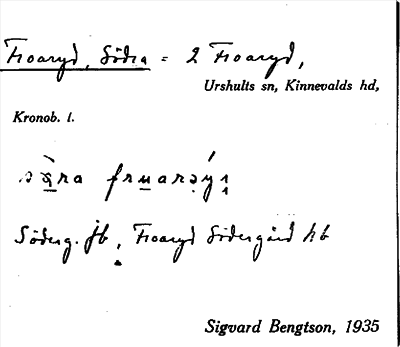 Froaryd, Södra = 2 Froaryd,
Urshults sn, Kinnevalds hd,
Kronob. l.
Söderg. jb, Froaryd Södergård hb
Sigvard Bengtson, 1935